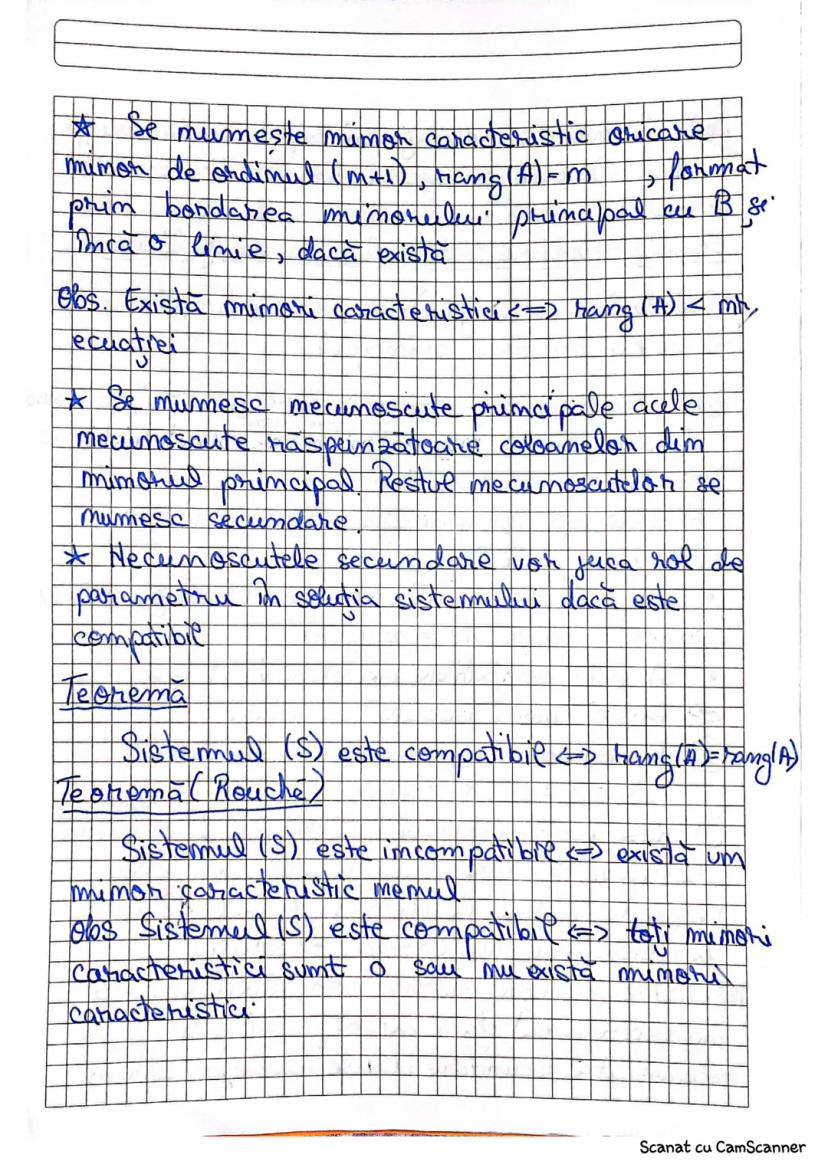 ★ Se numește minor caracteristic oricare
minor de ordinul (m+1), rang(A)=m , format
prin bordarea minorului principal cu B și
încă o linie, dacă există
Obs. Există minori caracteristici <=> rang(A) < nr,
ecuației
★ Se numesc necunoscute principale acele
necunoscute răspunzătoare coloanelor din
minorul principal. Restul necunoscutelor se
numesc secundare.
★ Necunoscutele secundare vor juca rol de
parametru în soluția sistemului dacă este
compatibil
Teoremă
Sistemul (S) este compatibil <=> rang(Ā)=rang(A)
Teoremă (Rouché)
Sistemul (S) este incompatibil <=> există un
minor caracteristic nenul
Obs Sistemul (S) este compatibil <=> toți minori
caracteristici sunt 0 sau nu există minorii
caracteristici.
Scanat cu CamScanner